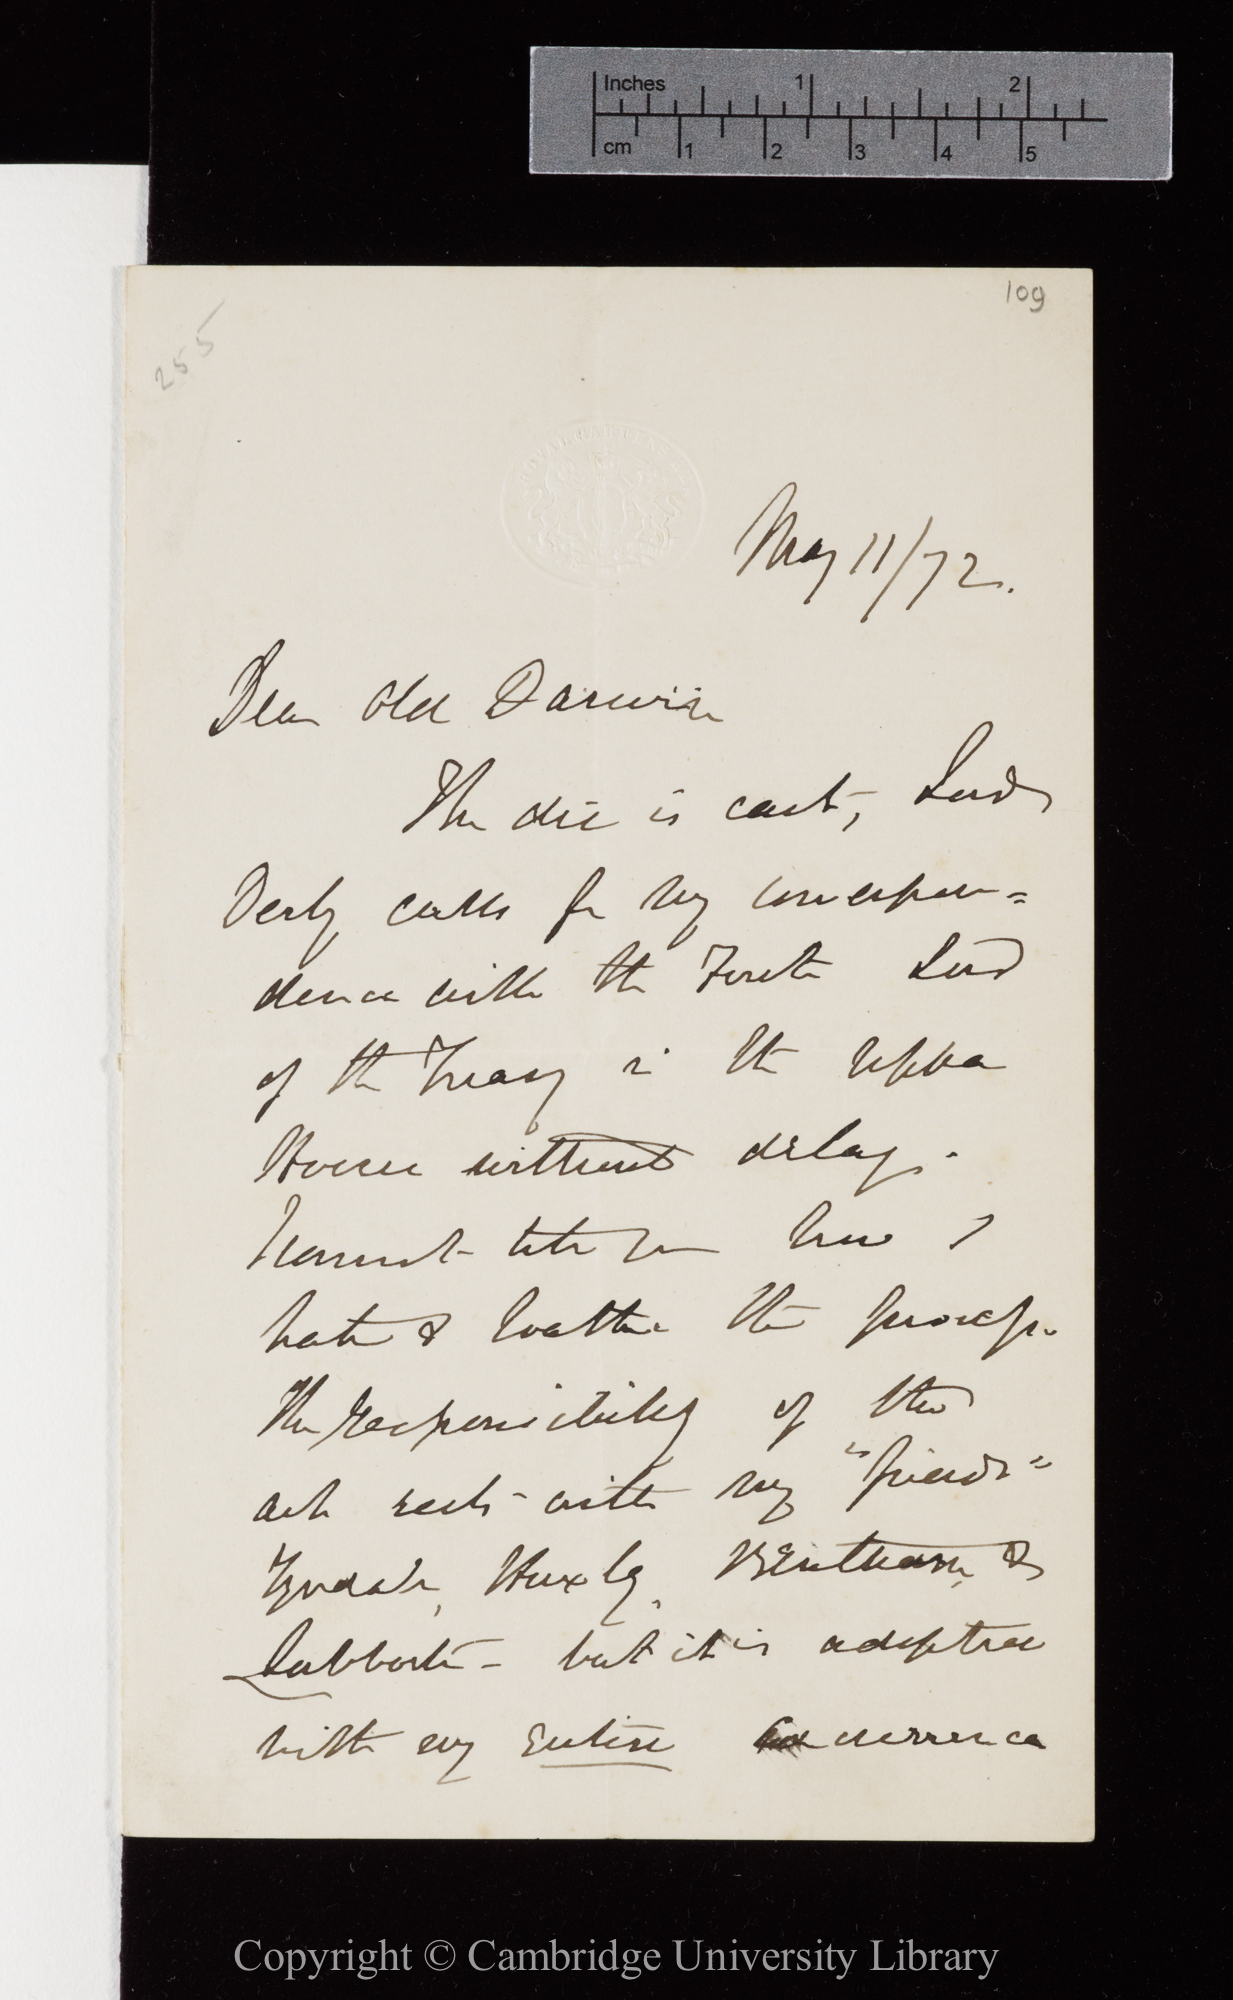 Inches 1 2
cm 1 2 3 4 5
109
255
ROYAL GARDENS KEW
May 11/72.
Dear old Darwin
The die is cast, Lord
Derby calls for my correspon=
dence with the First Lord
of the Treasy in the Upper
House without delay.
I cannot tell you how I
hate & loathe the process.
The responsibility of the
act rests with my "friends"
Tyndale, Huxley, Bentham, &
Lubbock — but it is adopted
with my entire concurrence
Copyright © Cambridge University Library